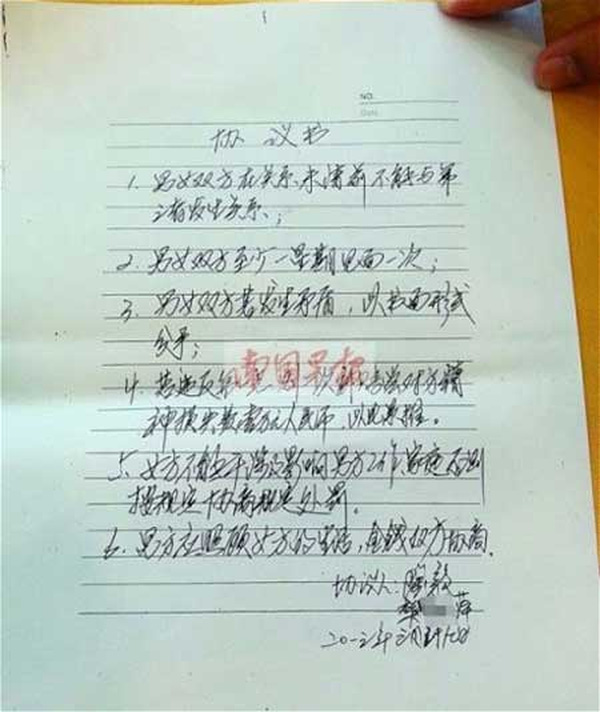 NO.
Date
协议书
1、男女双方在关系未清前不能与第
三者发生关系；
2、男女双方至少一星期见面一次；
3、男女双方若发生矛盾，以书面形式
分手；
南国早报
4、若违反第 对方精
神损失数壹万元人民币，以此类推。
五、女方不能干涉及影响男方工作、家庭否则
按规定 协商规定处罚。
6、男方应照顾女方的生活，金钱双方协商。
协议人：陶毅
萍
二〇一三年三月